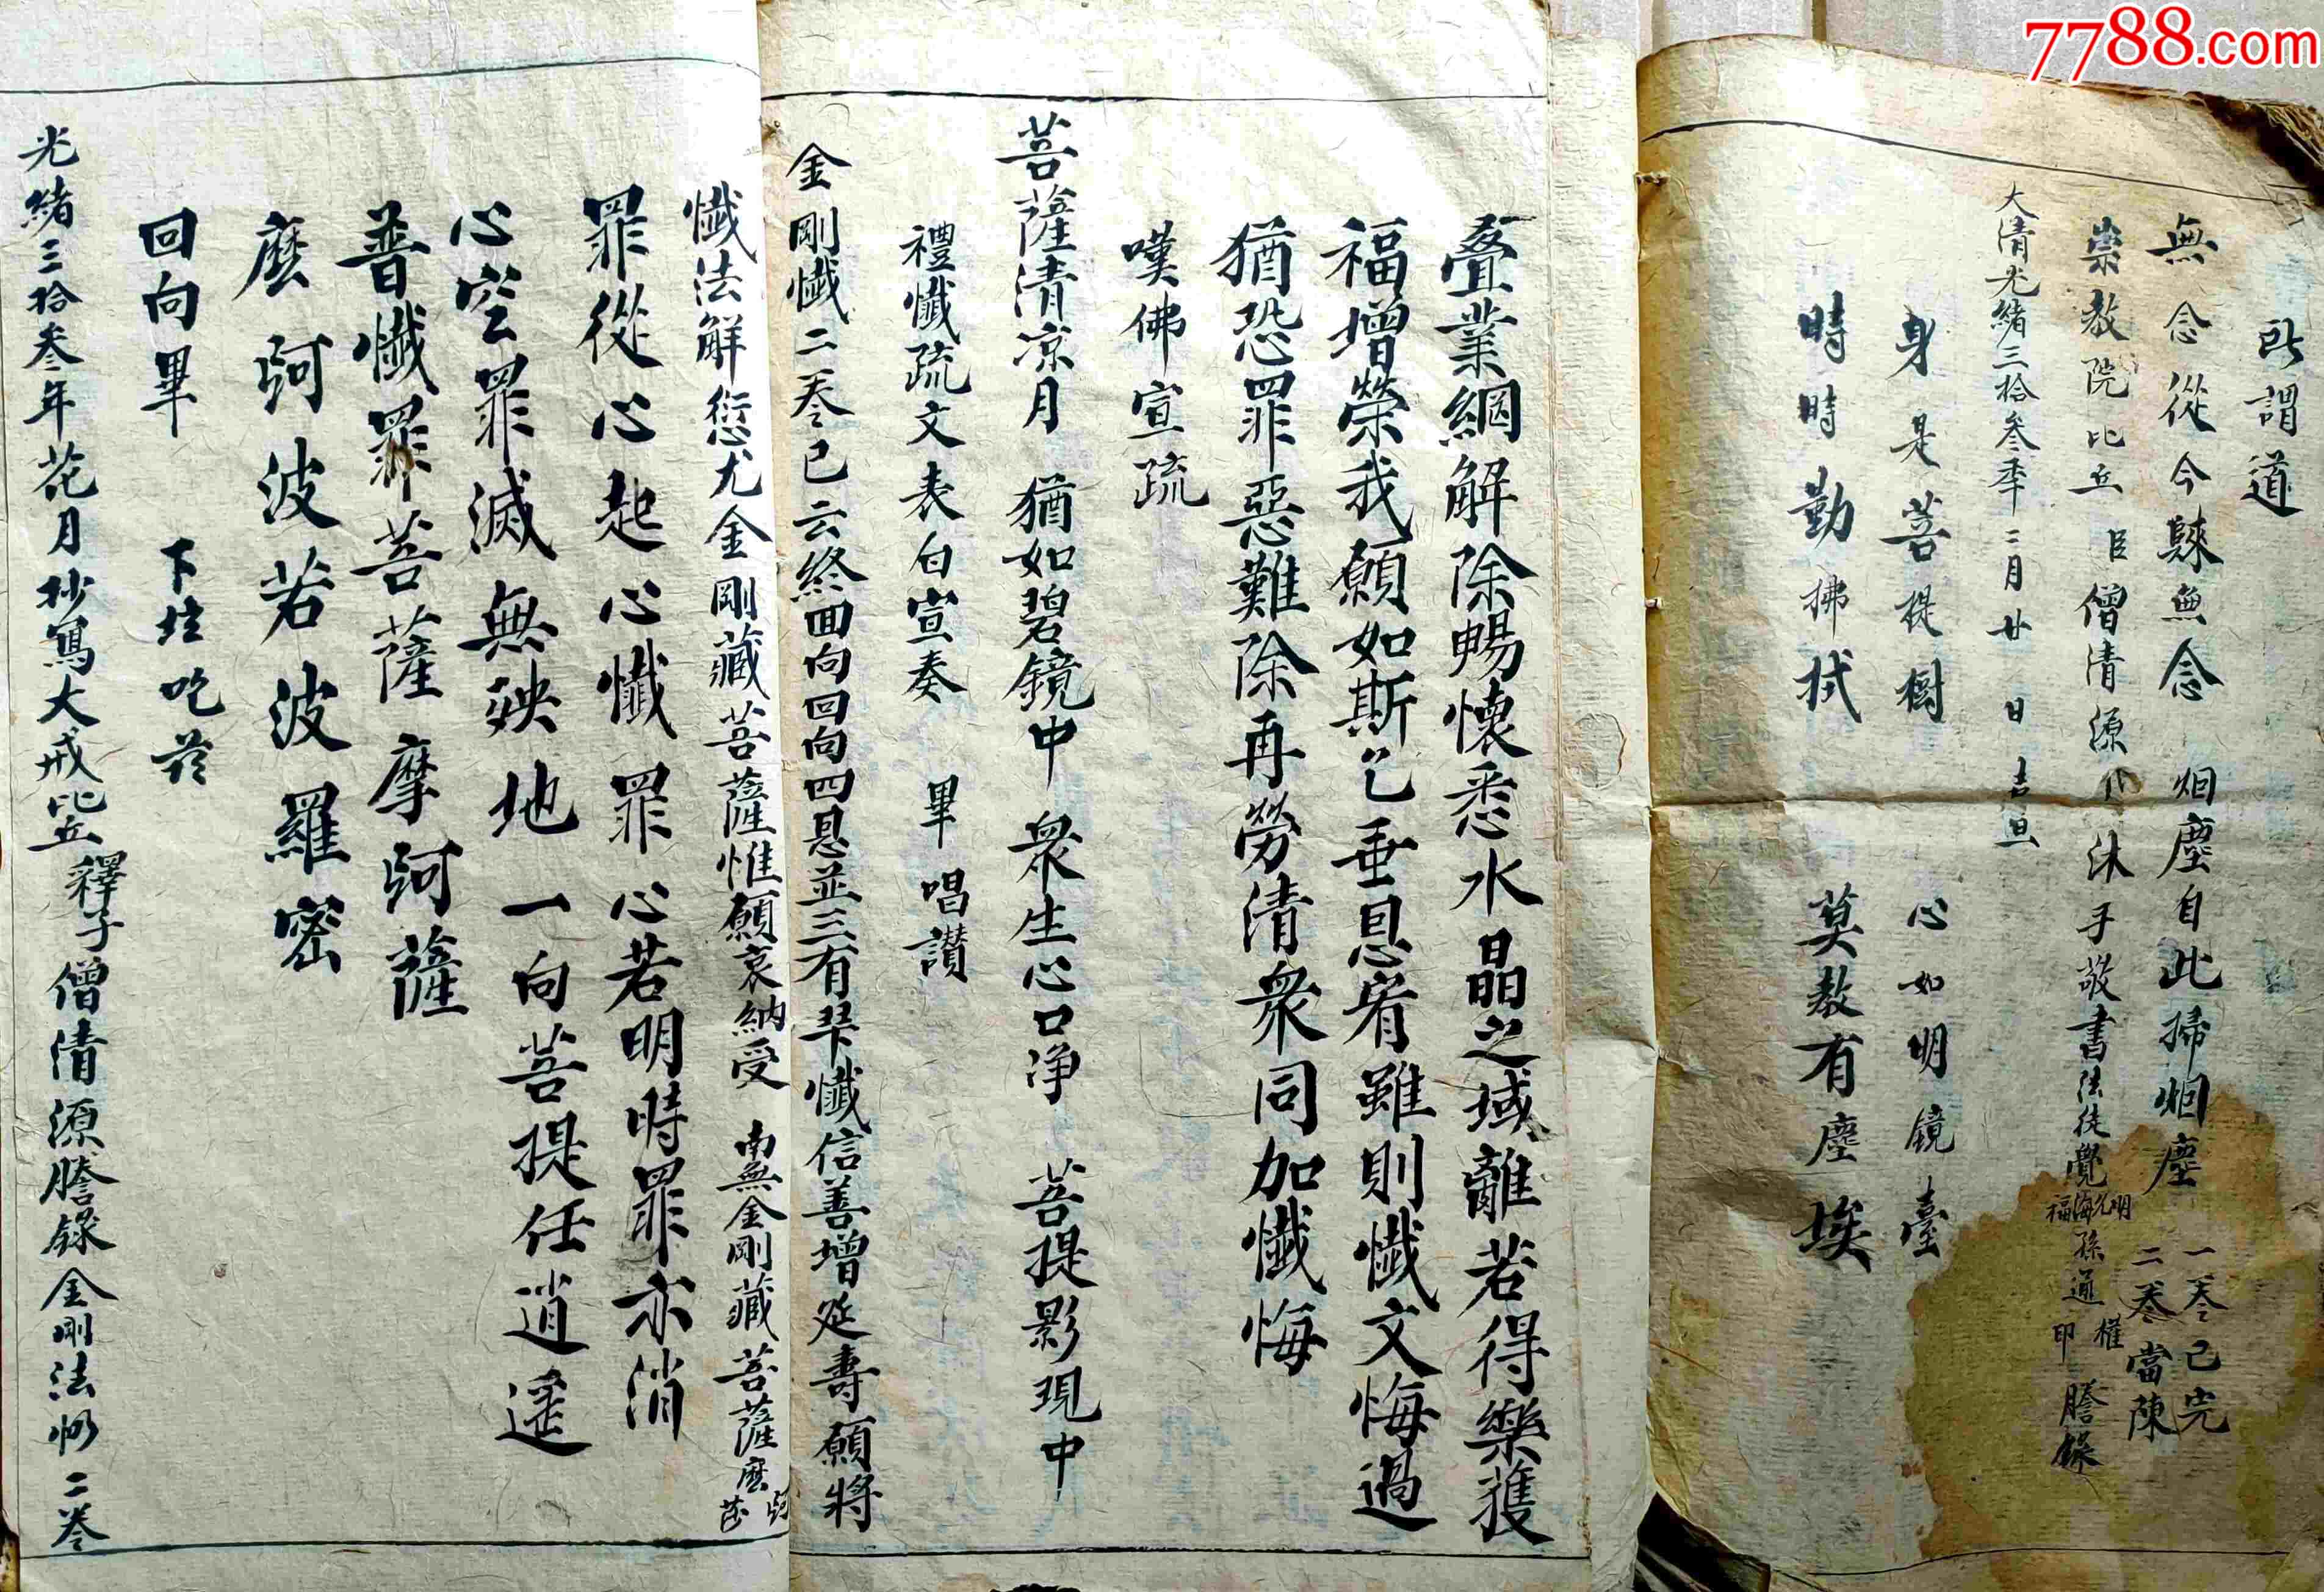 7788.com
所謂道
無念從今歸無念 烟塵自此掃烟塵 一卷已完
二卷當陳
崇教院比丘臣僧清源 沐手敬書法徒覺明允海福孫通權印 謄錄
大清光緒三拾叁年二月廿 日 吉旦
身是菩提樹 心如明鏡臺
時時勤拂拭 莫教有塵埃
疊業綱解除暢懷悉水晶之域離若得樂獲
福增榮我願如斯乞垂恩宥雖則懺文悔過
猶恐罪惡難除再勞清衆同加懺悔
嘆佛宣疏
菩薩清凉月 猶如碧鏡中 衆生心口净 菩提影現中
禮懺疏文表白宣奏 畢 唱讃
金剛懺二卷已云終回向回向四恩並三有拜懺信善增延壽願將
懺法解愆尤金剛藏菩薩惟願哀納受 南無金剛藏菩薩麽訶薩
罪從心起心懺 罪心若明時罪亦消
心空罪滅無殃地 一向菩提任逍遥
普懺罪菩薩摩訶薩
麽訶波若波羅密
回向畢 下坛吃茶
光緒三拾叁年花月抄寫大戒比丘釋子僧清源謄錄金剛法懺二卷